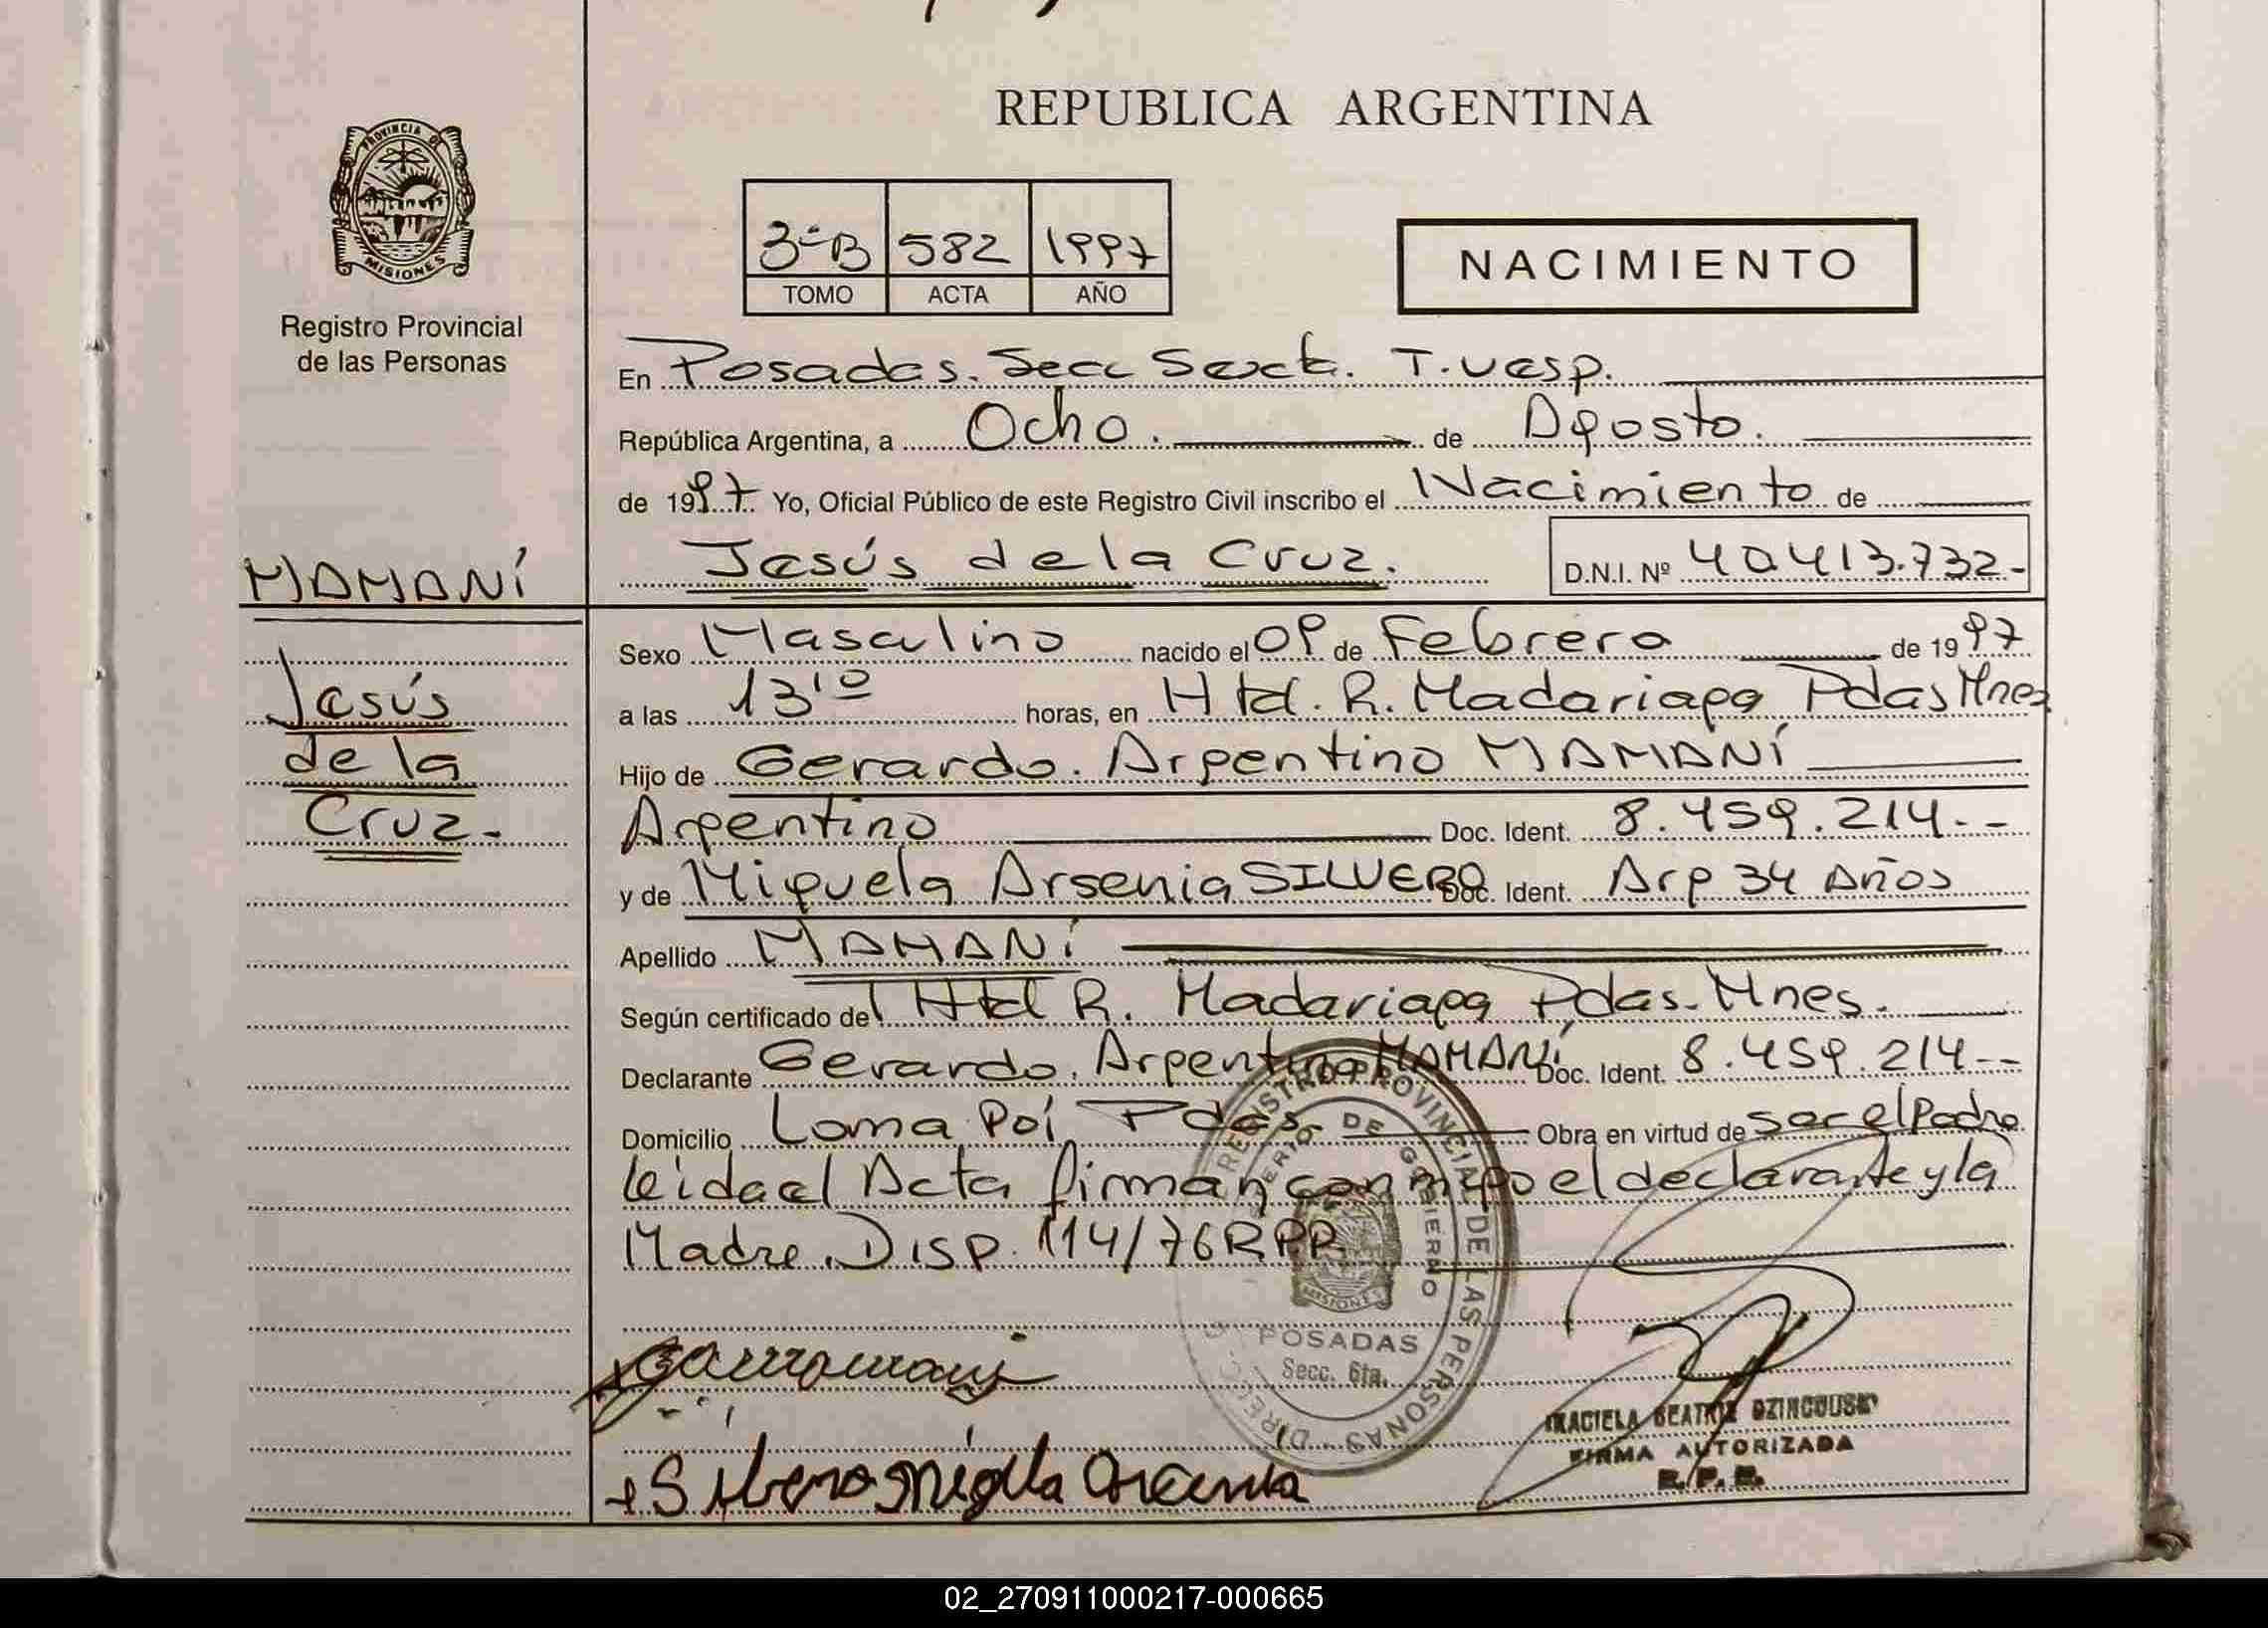 REPUBLICA ARGENTINA
PROVINCIA DE
MISIONES
Registro Provincial
de las Personas
3-B 582 1997
TOMO ACTA AÑO
NACIMIENTO
En Posadas. Secc Sexta. T. Vesp.
República Argentina, a Ocho. de Agosto.
de 1997 Yo, Oficial Público de este Registro Civil inscribo el Nacimiento de
Jesús de la Cruz. D.N.I. Nº 40413.732-
MAMANÍ
Jesús
de la
Cruz-
Sexo Masculino nacido el 09 de Febrero de 1997
a las 13 10 horas, en Htal. R. Madariaga Pdas Mnes
Hijo de Gerardo. Argentino MAMANÍ
Argentino Doc. Ident. 8.459.214--
y de Miguela Arsenia SILVERO Doc. Ident. Arg 34 Años
Apellido MAMANÍ
Según certificado del Htal R. Madariaga Pdas. Mnes.
Declarante Gerardo. Argentino MAMANÍ Doc. Ident. 8.459.214--
Domicilio Loma Poí Pdas. Obra en virtud de ser el Padre
leida el Acta firman conmigo el declarante y la
Madre. Disp. 114/76 RPP
REGISTRO PROVINCIAL DE LAS PERSONAS
DE GOBIERNO
MISIONES
POSADAS
Secc. 6ta.
+Silvero Migela
GRACIELA BEATRIZ
FIRMA AUTORIZADA
R. P. P.
02_270911000217-000665